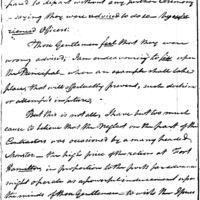 pared to depart without any further ceremony
— saying they were advised to do so by
Officers.
Those Gentlemen feel that they were
wrong advised; I am endeavouring to fix upon
the Principal, when an example shall take
place, that will effectually prevent, such
or attempts in future.
But this is not all, I have but too much
cause to believe that the Neglect on the part of the
Contractors was occasioned by a
the high price of the rations at Fort
Hamilton in proportion to the posts for advance
might operate as a powerful inducement upon
the minds of those Gentlemen — to wish the